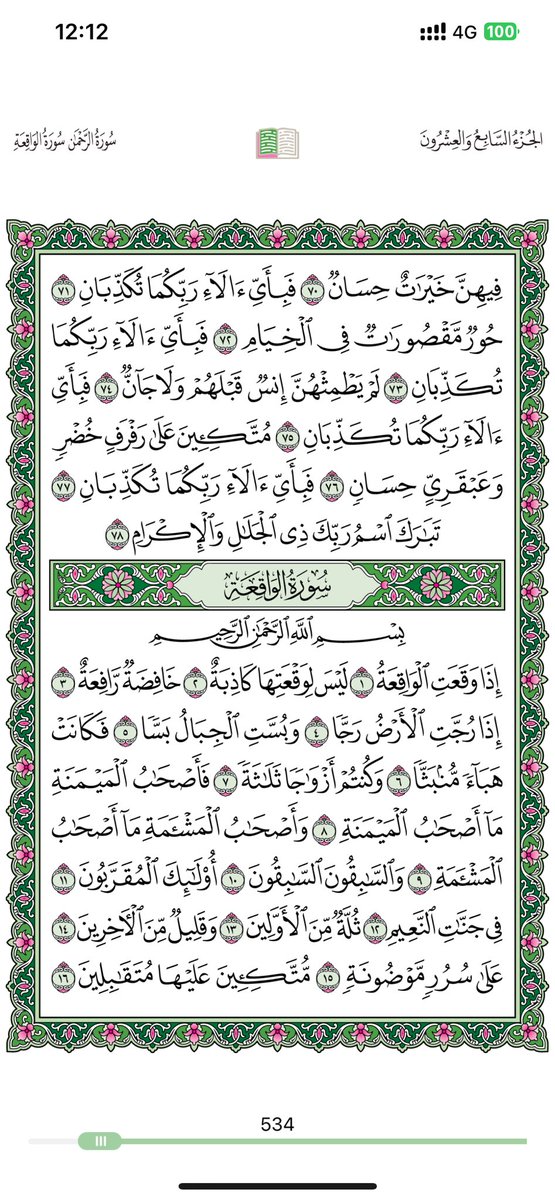 12:12 4G 100
الجُزْءُ السَّابِعُ وَالعِشْرُونَ سُورَةُ الرَّحْمَٰن سُورَةُ الوَاقِعَةِ
فِيهِنَّ خَيْرَٰتٌ حِسَانٞ ٧٠ فَبِأَيِّ ءَالَآءِ رَبِّكُمَا تُكَذِّبَانِ ٧١
حُورٞ مَّقْصُورَٰتٞ فِي ٱلْخِيَامِ ٧٢ فَبِأَيِّ ءَالَآءِ رَبِّكُمَا
تُكَذِّبَانِ ٧٣ لَمْ يَطْمِثْهُنَّ إِنسٞ قَبْلَهُمْ وَلَا جَآنّٞ ٧٤ فَبِأَيِّ
ءَالَآءِ رَبِّكُمَا تُكَذِّبَانِ ٧٥ مُتَّكِـِٔينَ عَلَىٰ رَفْرَفٍ خُضْرٖ
وَعَبْقَرِيٍّ حِسَانٖ ٧٦ فَبِأَيِّ ءَالَآءِ رَبِّكُمَا تُكَذِّبَانِ ٧٧
تَبَٰرَكَ ٱسْمُ رَبِّكَ ذِي ٱلْجَلَٰلِ وَٱلْإِكْرَامِ ٧٨
سُورَةُ الوَاقِعَةِ
بِسْمِ ٱللَّهِ ٱلرَّحْمَٰنِ ٱلرَّحِيمِ
إِذَا وَقَعَتِ ٱلْوَاقِعَةُ ١ لَيْسَ لِوَقْعَتِهَا كَاذِبَةٌ ٢ خَافِضَةٞ رَّافِعَةٌ ٣
إِذَا رُجَّتِ ٱلْأَرْضُ رَجّٗا ٤ وَبُسَّتِ ٱلْجِبَالُ بَسّٗا ٥ فَكَانَتْ
هَبَآءٗ مُّنۢبَثّٗا ٦ وَكُنتُمْ أَزْوَٰجٗا ثَلَٰثَةٗ ٧ فَأَصْحَٰبُ ٱلْمَيْمَنَةِ
مَآ أَصْحَٰبُ ٱلْمَيْمَنَةِ ٨ وَأَصْحَٰبُ ٱلْمَشْـَٔمَةِ مَآ أَصْحَٰبُ
ٱلْمَشْـَٔمَةِ ٩ وَٱلسَّٰبِقُونَ ٱلسَّٰبِقُونَ ١٠ أُوْلَٰٓئِكَ ٱلْمُقَرَّبُونَ ١١
فِي جَنَّٰتِ ٱلنَّعِيمِ ١٢ ثُلَّةٞ مِّنَ ٱلْأَوَّلِينَ ١٣ وَقَلِيلٞ مِّنَ ٱلْأٓخِرِينَ ١٤
عَلَىٰ سُرُرٖ مَّوْضُونَةٖ ١٥ مُّتَّكِـِٔينَ عَلَيْهَا مُتَقَٰبِلِينَ ١٦
534